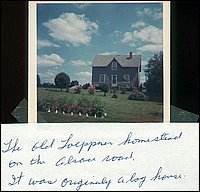 The old Loeppner homestead
on the Alsace road.
It was originaly a log house.